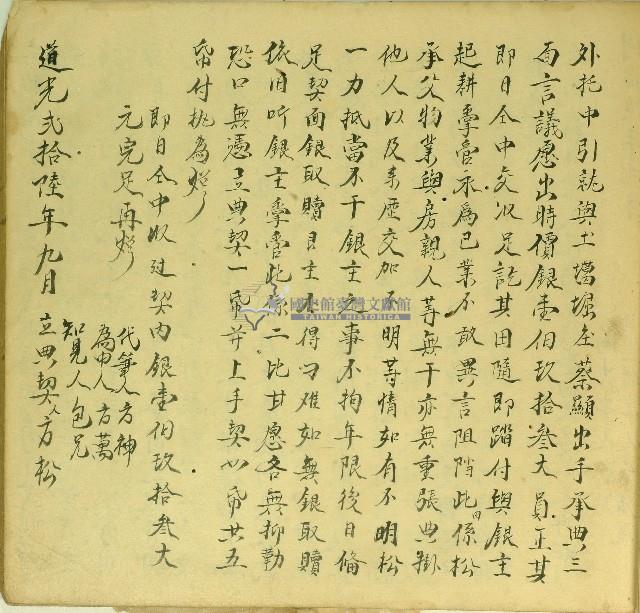 外托中引就與土墈堀庄蔡顯出手承典三
面言議愿出時價銀壹伯玖拾叁大員正其
即日仝中交收足訖其田隨即踏付與銀主
起耕掌管永為己業不敢異言阻擋此田係松
承父物業與房親人等無干亦無重張典掛
他人以及來歷交加不明等情如有不明松
一力抵當不干銀主之事不拘年限後日俻
足契面銀取贖艮主不得刁难如無銀取贖
依旧听銀主掌管此係二比甘愿各無抑勒
恐口無憑立典契一帋并上手契四帋共五
帋付執為炤
即日仝中收过契內銀壹伯玖拾叁大
元完足再炤
代筆人方神
為中人方萬
知見人包兄
道光弍拾陸年九月 立典契人方松
國史館臺灣文獻館
TAIWAN HISTORICA